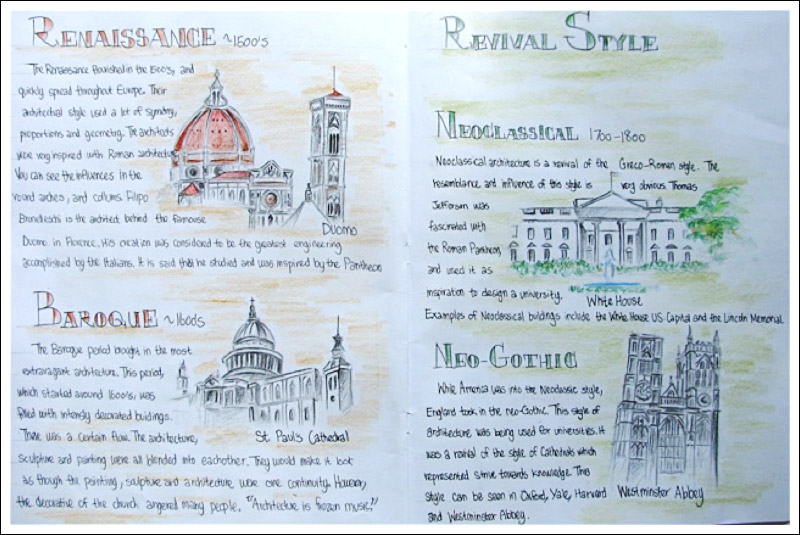 RENAISSANCE ~1500's
The Renaissance flourished in the 1500's, and
quickly spread throughout Europe. Their
architectural style used a lot of symmetry,
proportions and geometry. The architects
were very inspired with Roman architecture
You can see the influences in the
round arches, and collums. Filipo
Brunelleschi is the architect behind the famouse
Duomo
Duomo in Florence, His creation was considered to be the greatest engineering
accomplished by the Italians. It is said that he studied and was inspired by the Pantheon
BAROQUE ~1600s
The Baroque period brought in the most
extravagant architecture. This period,
which started around 1600's, was
filled with intensly decorated buidings.
There was a certain flow. The architecture,
St Paul's Cathedral
sculpture and painting were all blended into eachother. They would make it look
as though the painting, sculpture and architecture were one continuity. However,
the decorative of the church angered many people. "Architecture is frozen music"
REVIVAL STYLE
NEOCLASSICAL 1700-1800
Neoclassical architecture is a revival of the Greco-Roman style. The
resemblance and influence of this style is very obvious. Thomas
Jefferson was
fascinated with
the Roman Pantheon,
and used it as
inspiration to design a university.
White House
Examples of Neoclassical buildings include the White House US Capital and the Lincoln Memorial
NEO-GOTHIC
While America was into the Neoclassic style,
England took in the neo-Gothic. This style of
architecture was being used for universities. It
was a revival of the style of Cathedrals which
represented strive towards knowledge. This
style can be seen in Oxford, Yale, Harvard
Westminster Abbey
and Westminster Abbey.